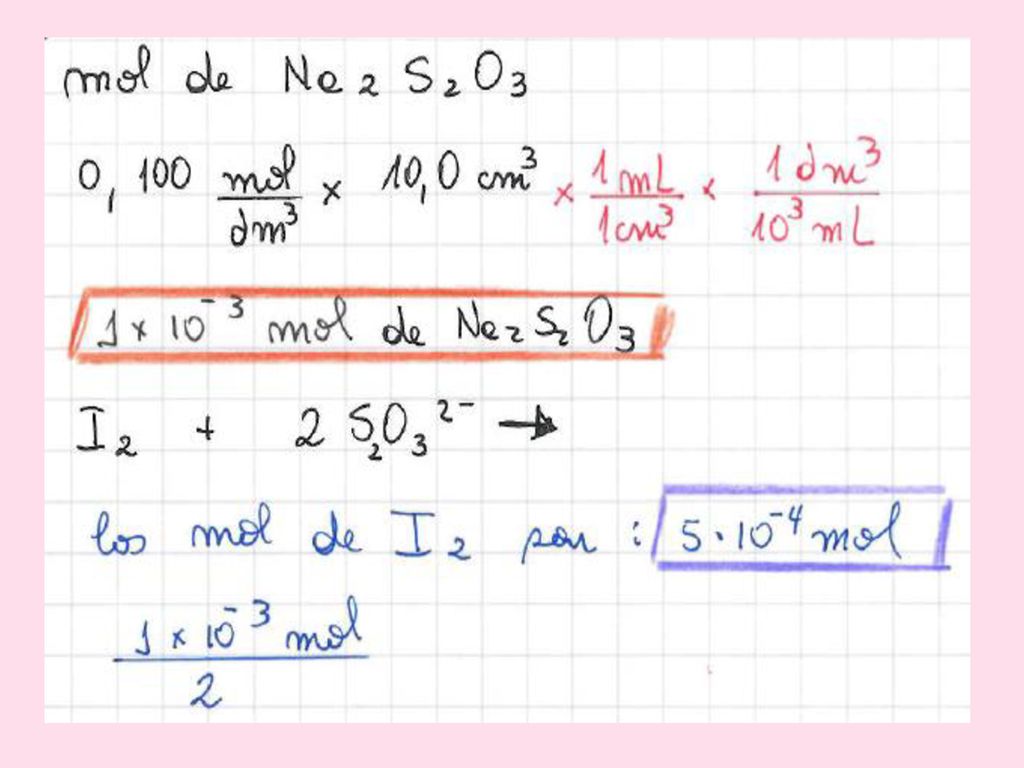 mol de Na₂S₂O₃
0,100 mol/dm³ × 10,0 cm³ × 1 mL/1 cm³ × 1 dm³/10³ mL
1 × 10⁻³ mol de Na₂S₂O₃
I₂ + 2 S₂O₃²⁻ →
los mol de I₂ son : 5·10⁻⁴ mol
1 × 10⁻³ mol
2